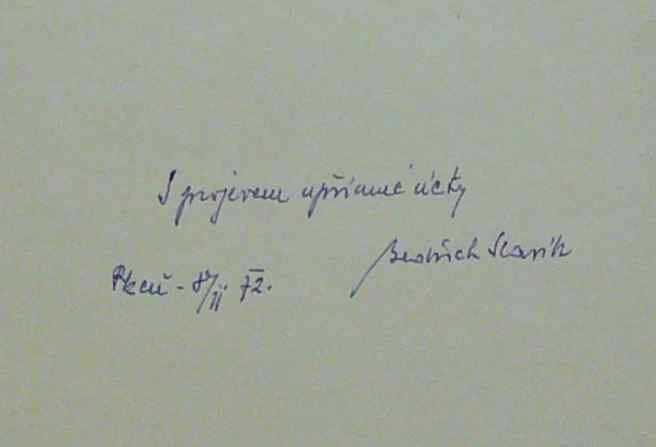 S projevem upřímné úcty
Bedřich Slavík
Plzeň - 8/II 72.